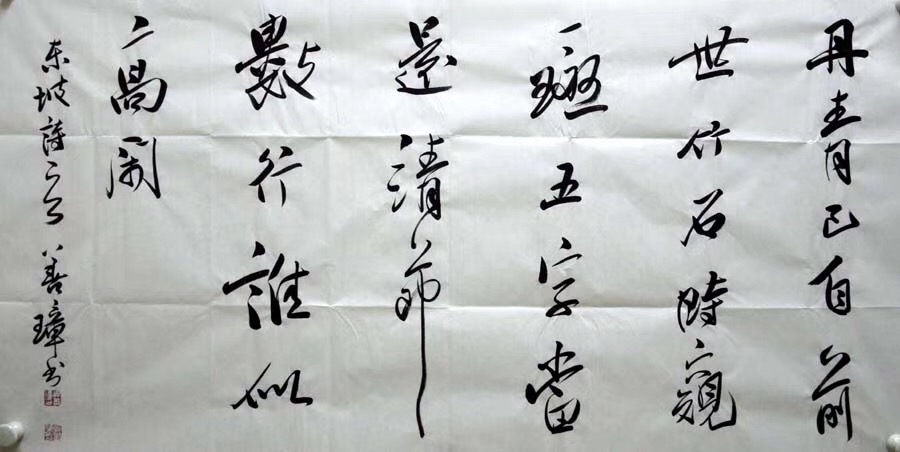 丹青已自前
世竹石時窺
一斑五字當
還清節
數行誰似
高閑
東坡詩一首 善璋书